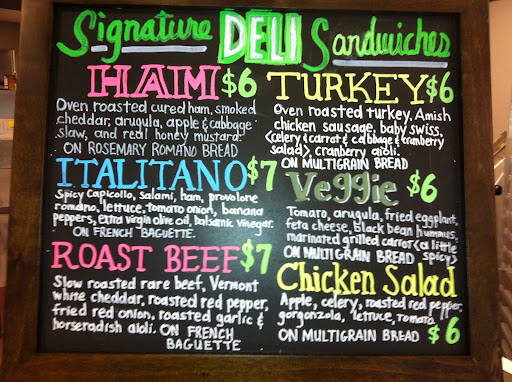 Signature DELI Sandwiches
HAM $6
Oven roasted cured ham, smoked
cheddar, arugula, apple & cabbage
slaw, and real honey mustard.
ON ROSEMARY ROMANO BREAD
TURKEY $6
Oven roasted turkey, Amish
chicken sausage, baby swiss,
(celery & carrot & cabbage & cranberry
salad), cranberry aioli.
ON MULTIGRAIN BREAD
ITALITANO $7
Spicy Capicollo, salami, ham, provolone
romano, lettuce, tomato onion, banana
peppers, extra virgin olive oil, balsamic vinegar.
ON FRENCH BAGUETTE.
Veggie $6
Tomaro, arugula, fried eggplant,
feta cheese, black bean hummus,
marinated grilled carrot (a little
spicy)
ON MULTIGRAIN BREAD
ROAST BEEF $7
Slow roasted rare beef, Vermont
white cheddar, roasted red pepper,
fried red onion, roasted garlic &
horseradish aioli. ON FRENCH
BAGUETTE
Chicken Salad
Apple, celery, roasted red pepper,
gorgonzola, lettuce, tomato
ON MULTIGRAIN BREAD $6